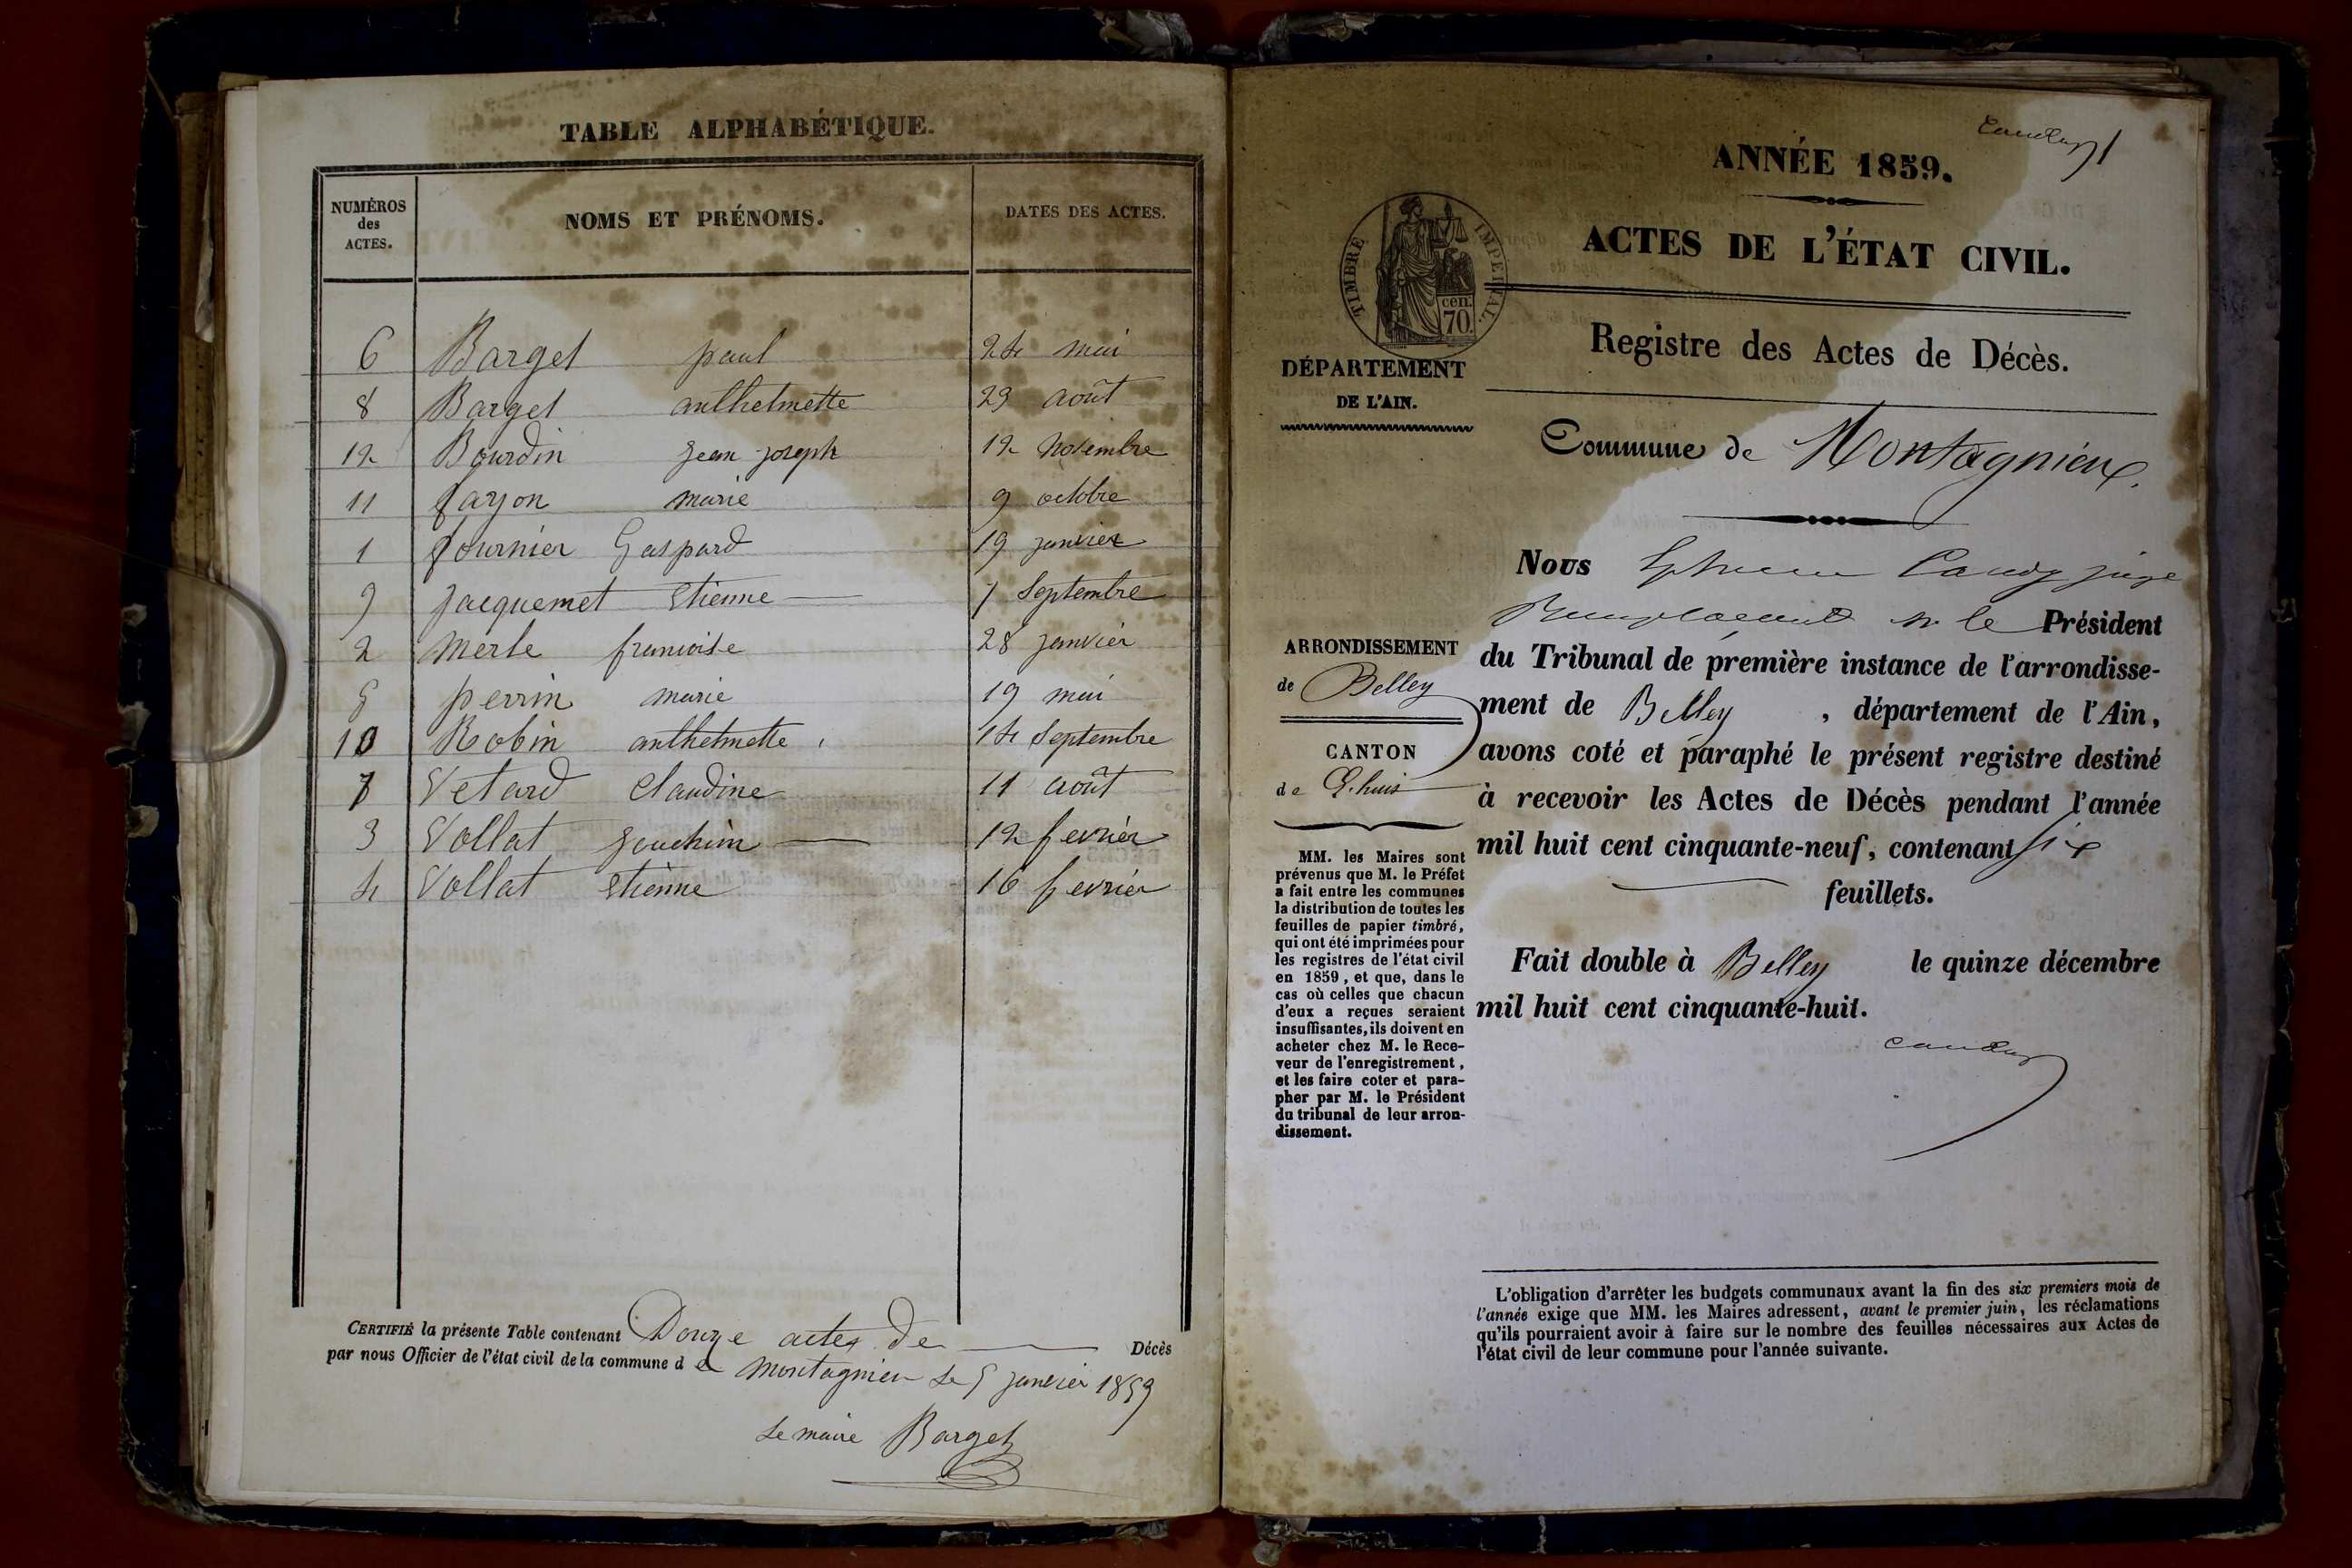 TABLE ALPHABÉTIQUE.
NUMÉROS
des
ACTES.
NOMS ET PRÉNOMS.
DATES DES ACTES.
6 Barget paul 24 mai
8 Barget anthelmette 23 août
12 Bourdin jean joseph 12 novembre
11 fayon marie 9 octobre
1 fournier Gaspard 19 janvier
9 jacquemet Etienne 7 Septembre
2 merle francoise 28 janvier
5 perrin marie 19 mai
10 Robin anthelmette 14 Septembre
7 Vetard Claudine 11 août
3 Vollat jouchim 12 fevrier
4 Vollat Etienne 16 fevrier
CERTIFIÉ la présente Table contenant Douze actes de Décès
par nous Officier de l'état civil de la commune d e montagnieu le 5 janvier 1859
Le maire Barget
Caudry 1
ANNÉE 1859.
TIMBRE IMPÉRIAL.
cen.
70.
ACTES DE L'ÉTAT CIVIL.
Registre des Actes de Décès.
DÉPARTEMENT
DE L'AIN.
Commune de Montagnieu.
ARRONDISSEMENT
de Belley
CANTON
de Lhuis
MM. les Maires sont
prévenus que M. le Préfet
a fait entre les communes
la distribution de toutes les
feuilles de papier timbré,
qui ont été imprimées pour
les registres de l'état civil
en 1859, et que, dans le
cas où celles que chacun
d'eux a reçues seraient
insuffisantes, ils doivent en
acheter chez M. le Rece-
veur de l'enregistrement,
et les faire coter et para-
pher par M. le Président
du tribunal de leur arron-
dissement.
Nous juge
le Président
du Tribunal de première instance de l'arrondisse-
ment de Belley, département de l'Ain,
avons coté et paraphé le présent registre destiné
à recevoir les Actes de Décès pendant l'année
mil huit cent cinquante-neuf, contenant six
feuillets.
Fait double à Belley le quinze décembre
mil huit cent cinquante-huit.
L'obligation d'arrêter les budgets communaux avant la fin des six premiers mois de
l'année exige que MM. les Maires adressent, avant le premier juin, les réclamations
qu'ils pourraient avoir à faire sur le nombre des feuilles nécessaires aux Actes de
l'état civil de leur commune pour l'année suivante.